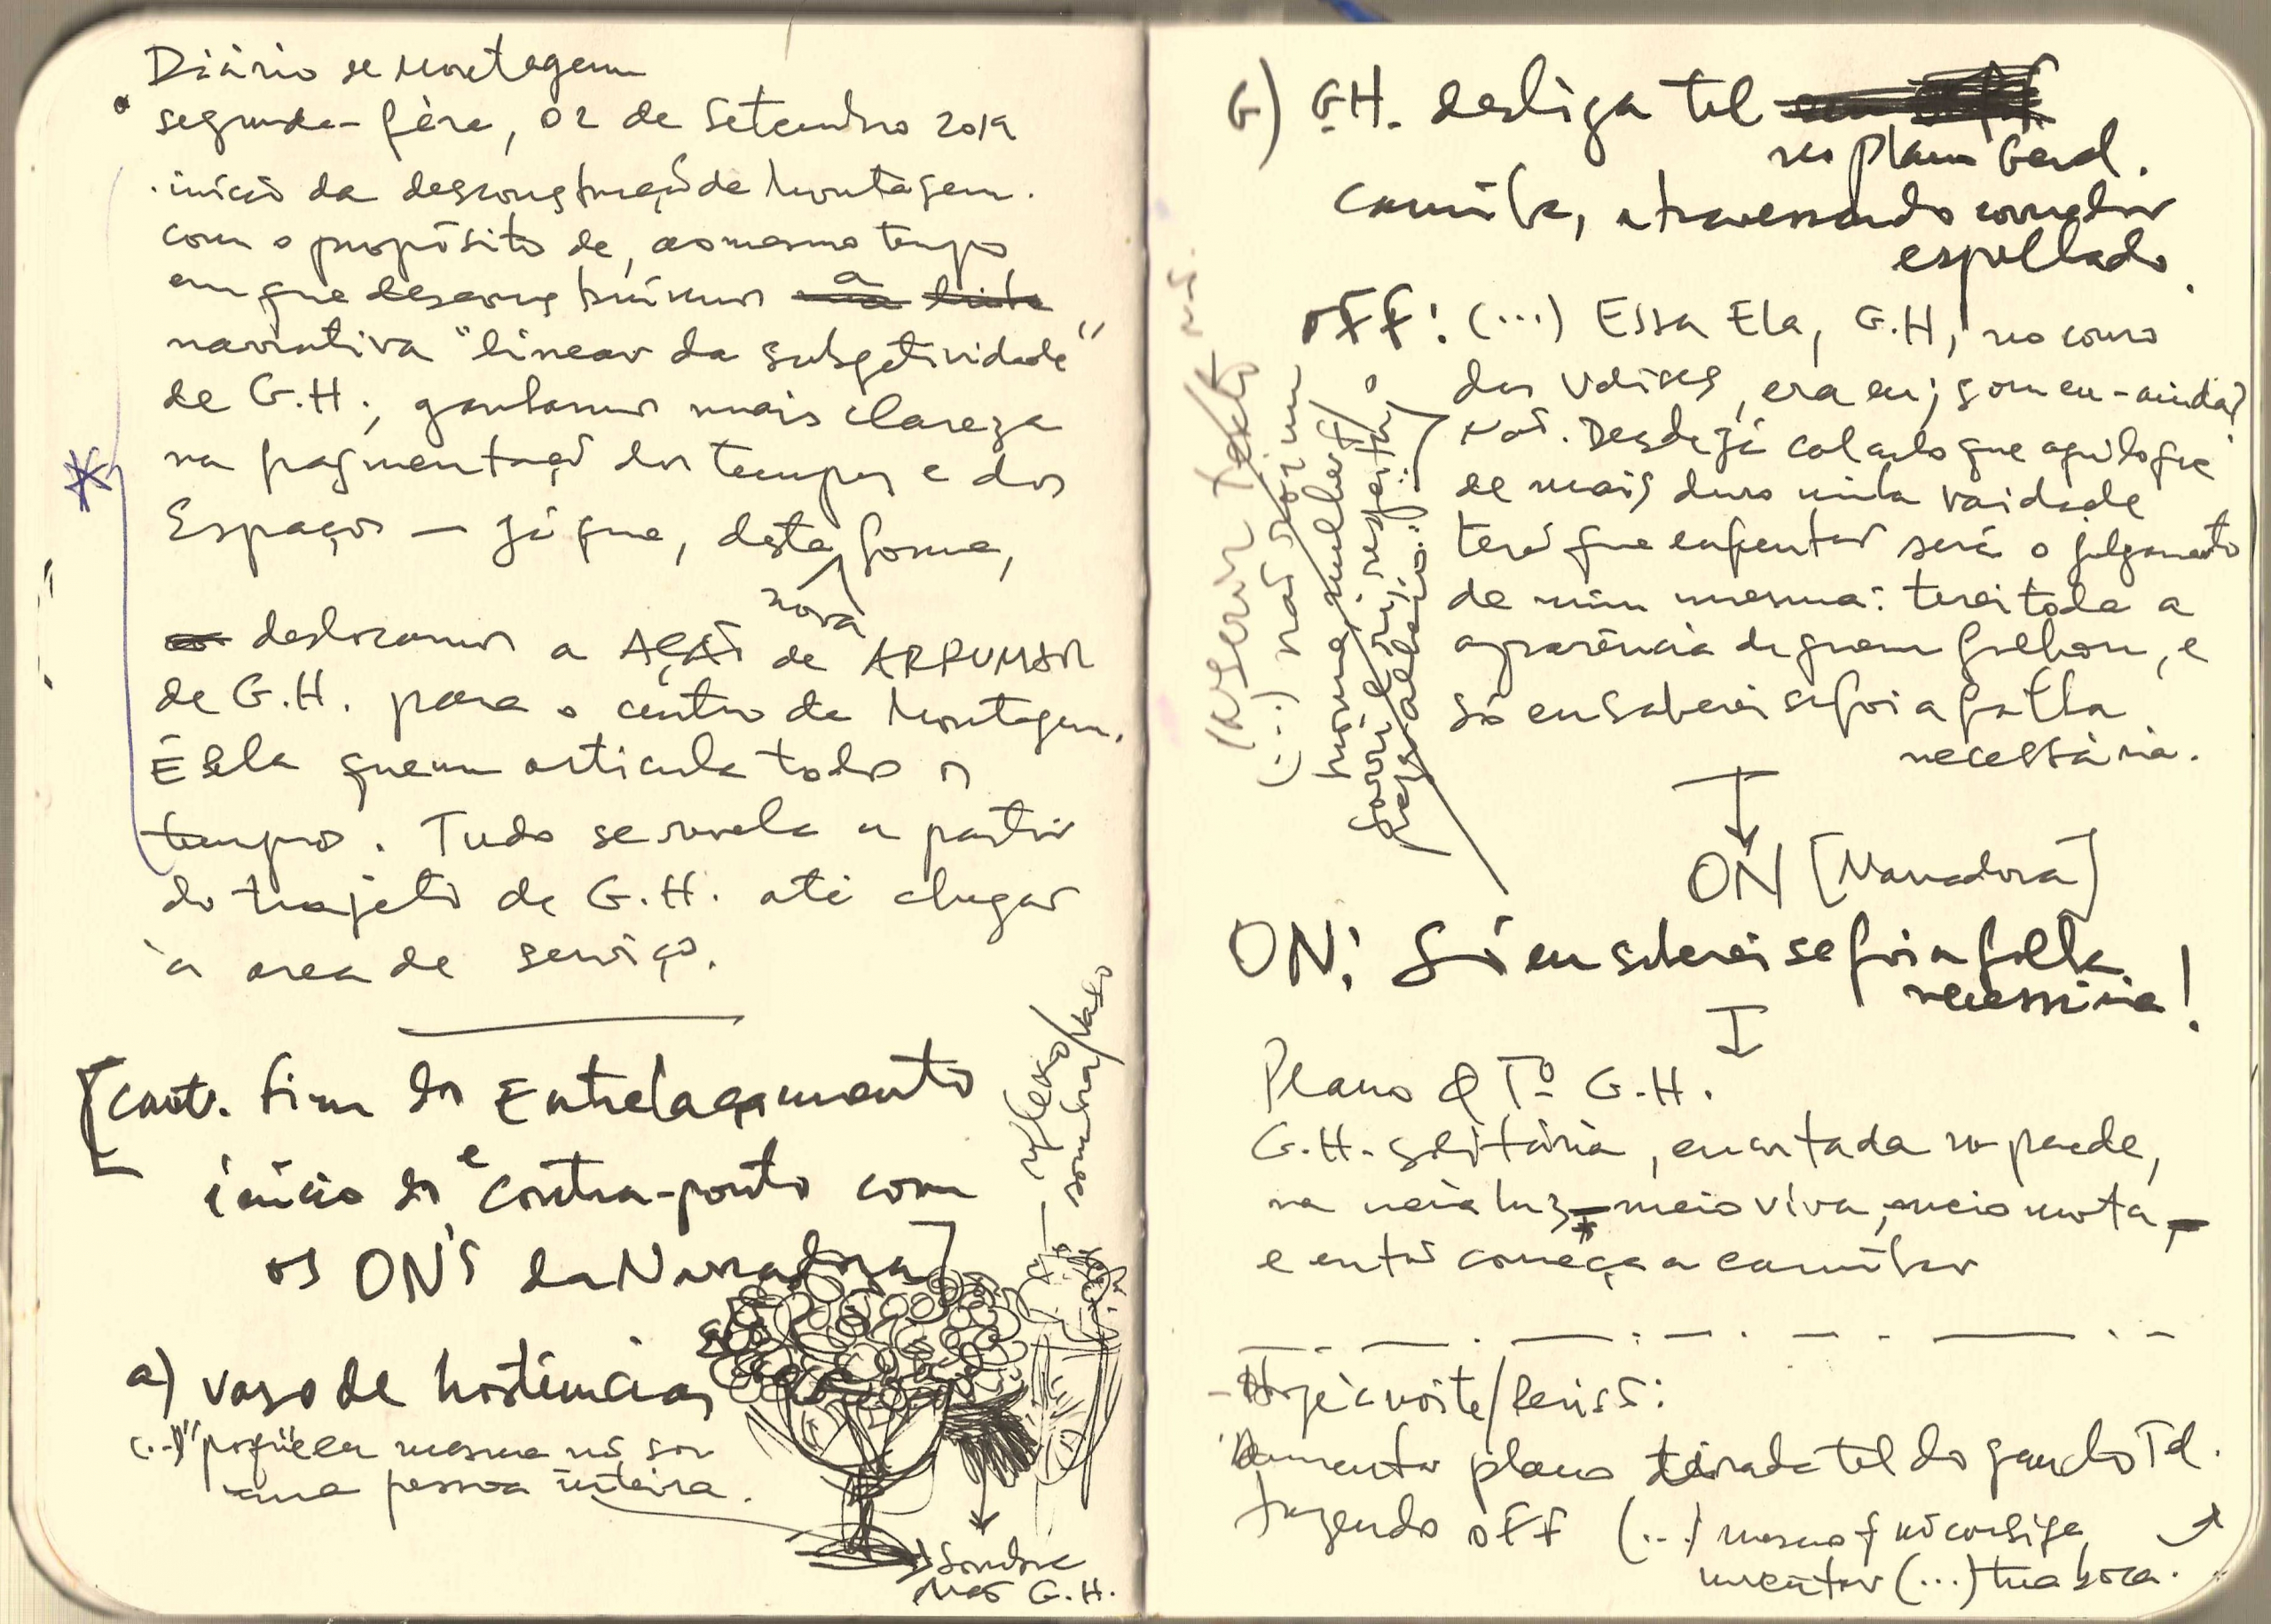 Diário de Montagem
segunda-feira, 02 de Setembro 2019
. início da desconstrução de Montagem.
com o propósito de, ao mesmo tempo
em que desconstruímos a
narrativa "linear da subjetividade"
de G.H., ganhamos mais clareza
na fragmentação dos tempos e dos
Espaços — já que, desta nova forma,
deslocamos a AÇÃO de ARRUMAR
de G.H. para o centro da Montagem.
É Ela quem articula todos os
tempos. Tudo se revela a partir
do trajeto de G.H. até chegar
à area de serviço.
[Cont. fim do Entrelaçamento
e início do contra-ponto com
os ON'S da Narradora]
a) vaso de hortências
(...) "porque eu mesma não sou
uma pessoa inteira.
— reflexo/vaso
sombra
sombra
mãos G.H.
G) G.H. desliga tel
no plano Geral.
Caminha, atravessando corredor
espelhado.
OFF: (...) Essa Ela, G.H, no couro
das valises, era eu; sou eu - ainda?
Não. Desde já calculo que aquilo que
de mais duro minha vaidade
terá que enfrentar será o julgamento
de mim mesma: terei toda a
aparência de quem falhou, e
só eu saberei se foi a falha
necessária.
Inserir texto
(...) não sou um
ON [Narradora]
ON: Só eu saberei se foi a falha
necessária!
Plano QTº G.H.
G.H. solitária, encostada na parede,
na meia luz – meio viva, meio morta –
e então começa a caminhar
- Hoje à noite/
Aumentar plano tirada tel do gancho Tel.
fazendo OFF (...) mesmo q não consiga
inventar (...) tua boca.